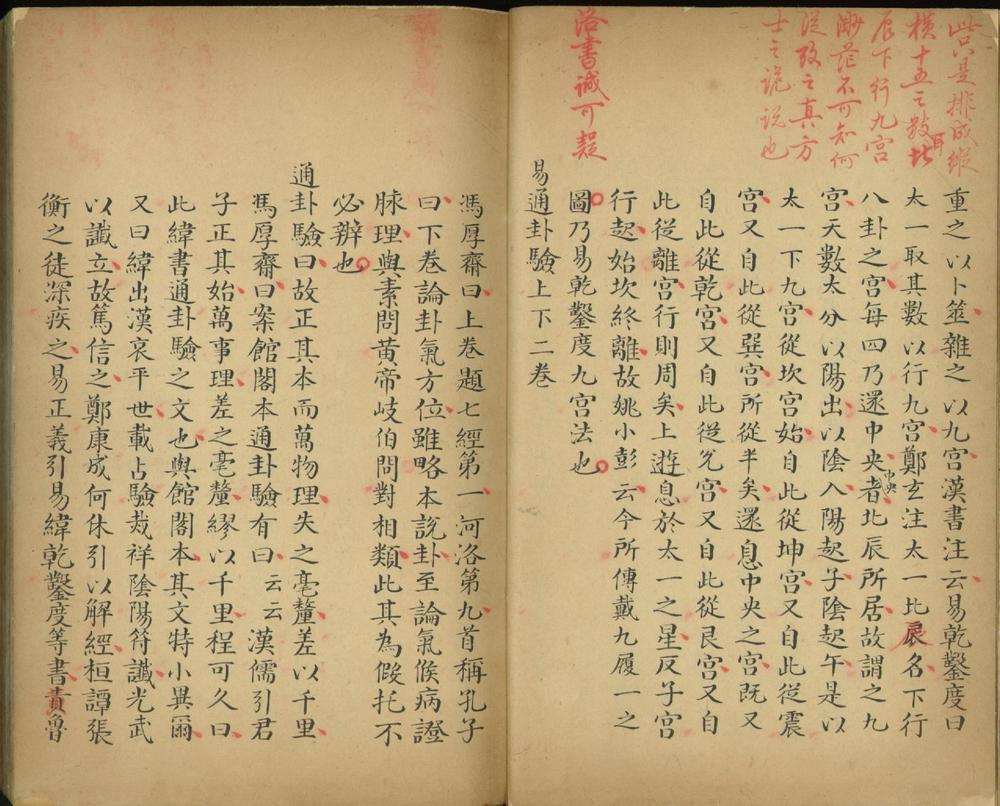 此只是排成縱
橫十五之數耳北
辰下行九宮
渺茫不可知何
從致之真方
士之說說也
洛書誠可疑
重之以卜筮雜之以九宮漢書注云易乾鑿度曰
太一取其數以行九宮鄭玄注太一北辰名下行
八卦之宮每四乃還中央中央者北辰所居故謂之九
宮天數太分以陽出以陰入陽起子陰起午是以
太一下九宮從坎宮始自此從坤宮又自此從震
宮又自此從巽宮所從半矣還息中央之宮既又
自此從乾宮又自此從兌宮又自此從艮宮又自
此從離宮行則周矣上遊息於太一之星反子宮
行起始坎終離故姚小彭云今所傳戴九履一之
圖乃易乾鑿度九宮法也
易通卦驗上下二卷
馮厚齋曰上卷題七經第一河洛第九首稱孔子
曰下卷論卦氣方位雖略本說卦至論氣候病證
脉理與素問黃帝岐伯問對相類此其為假托不
必辨也
通卦驗曰故正其本而萬物理失之毫釐差以千里
馮厚齋曰案館閣本通卦驗有曰云云漢儒引君
子正其始萬事理差之毫釐繆以千里程可久曰
此緯書通卦驗之文也與館閣本其文特小異爾
又曰緯出漢哀平世載占驗烖祥陰陽符讖光武
以讖立故篤信之鄭康成何休引以解經桓譚張
衡之徒深疾之易正義引易緯乾鑿度等書責魯